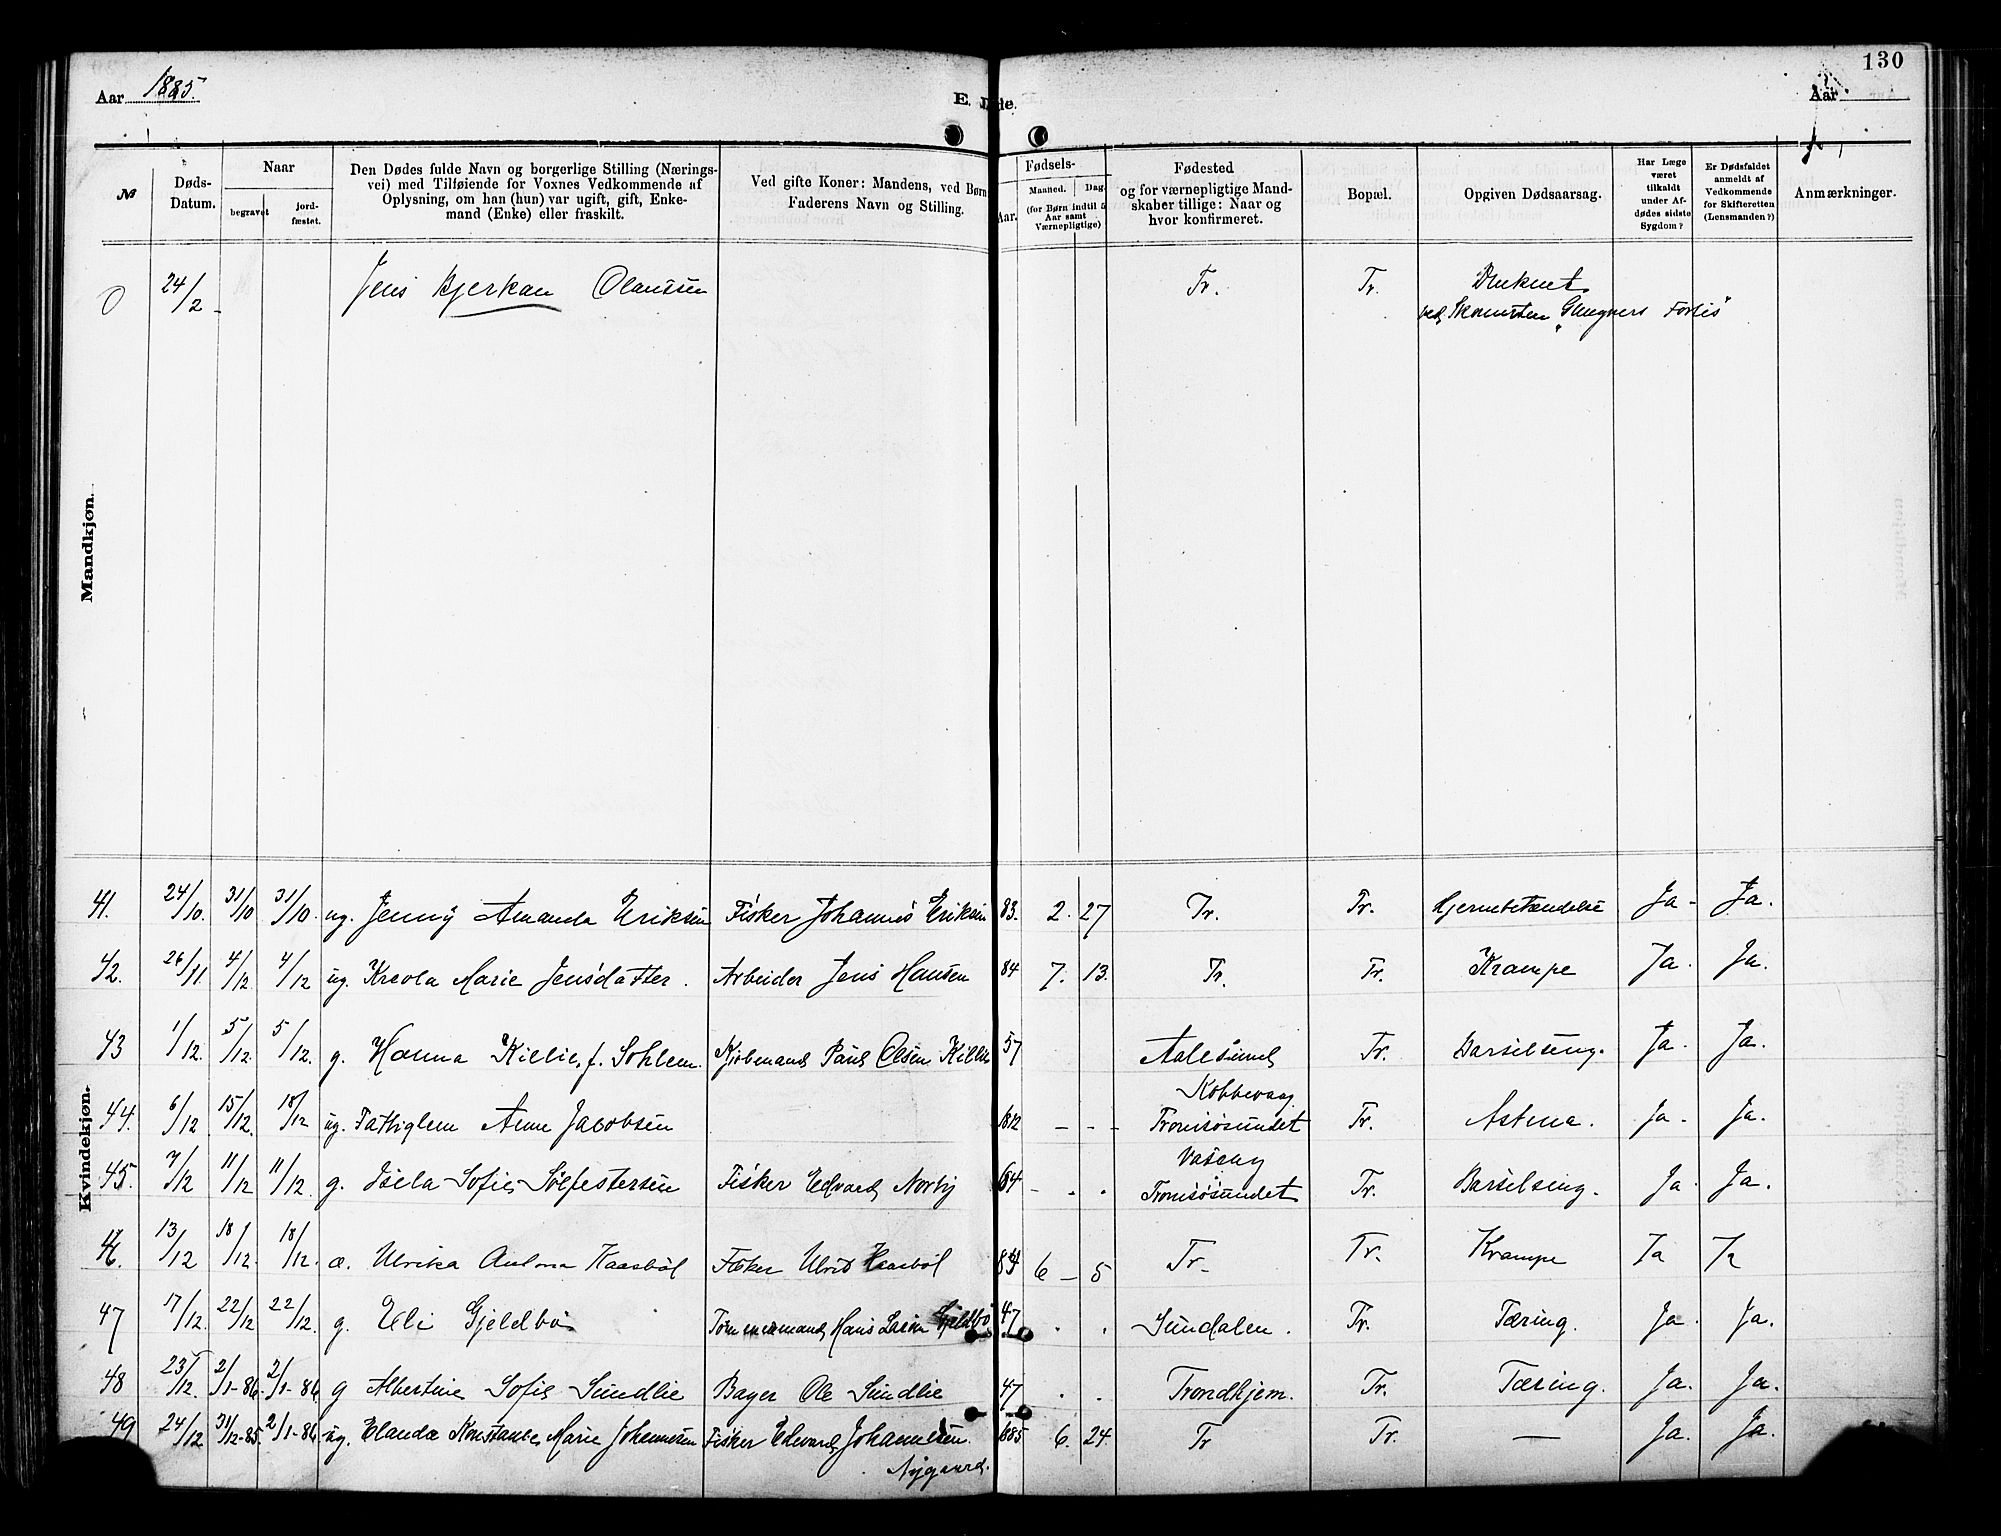 130
Aar 1885.
E. Døde.
Aar
Mandkjøn.
Kvindekjøn.
№
Døds-Datum.
Naar
begravet
jord-fæstet.
Den Dødes fulde Navn og borgerlige Stilling (Nærings-
vei) med Tilføiende for Voxnes Vedkommende af
Oplysning, om han (hun) var ugift, gift, Enke-
mand (Enke) eller fraskilt.
Ved gifte Koner: Mandens, ved Børn
Faderens Navn og Stilling.
Fødsels-
Aar.
Maaned.
Dag.
(for Børn indtil 5
Aar samt
Værnepligtige)
Fødested
og for værnepligtige Mand-
skaber tillige: Naar og
hvor konfirmeret.
Bopæl.
Opgiven Dødsaarsag.
Har Læge
været
tilkaldt
under Af-
dødes sidste
Sygdom?
Er Dødsfaldet
anmeldt af
Vedkommende
for Skifteretten
(Lensmanden?)
Anmærkninger.
0 24/2 - Jens Bjerkan Olaussen Tr. Tr. Druknet
ved Skonnerten "Gungners Forlis"
41. 24/10. 31/10 31/10. ug. Jenny Amanda Eriksen Fisker Johannes Eriksen 83. 2. 27 Tr. Tr. Hjernebetændelse Ja - Ja.
42. 26/11. 4/12. 4/12 ug. Kreola Marie Jensdatter. Arbeider Jens Hansen 84 7. 13. Tr. Tr. Krampe Ja. Ja.
43 1/12. 5/12. 5/12. g. Hanna Killie, f. Sohlem. Kjøbmand Paul Olsen Killie 57 Aalesund Tr. Barselseng. Ja. Ja.
44. 6/12 15/12. 18/12 ug. Fattiglem Anne Jacobsen 1812 - - - Kobbevaag
Tromsøsundet Tr. Astma. Ja - Ja.
45. 7/12 11/12 11/12. g. Isela Sofie Sølfestersen Fisker Edvard Norby 64 - . . Vaseng
Tromsøsundet Tr. Barselseng. Ja. Ja.
46. 13/12 18/12. 18/12. æ. Ulrika Antona Kaasbøl Fisker Ulrik Kaasbøl 84 6 - 5 Tr. Tr. Krampe Ja Ja
47 17/12. 22/12 22/12. g. Eli Gjeldbø Tømmermand Hans Larsen Gjeldbø 47 . . Sundalen. Tr. Tæring. Ja. Ja.
48 23/12. 2/1-86. 2/1-86. g Albertine Sofie Sundlie Bager Ole Sundlie 47 . . Trondhjem. Tr. Tæring. Ja. Ja.
49 24/12 31/12-85. 2/1-86. ug. Elandæ Konstanse Marie Johannesen Fisker Edvard Johannesen 1885 6. 24. Tr Tr. — Ja. Ja.
Nygaard.